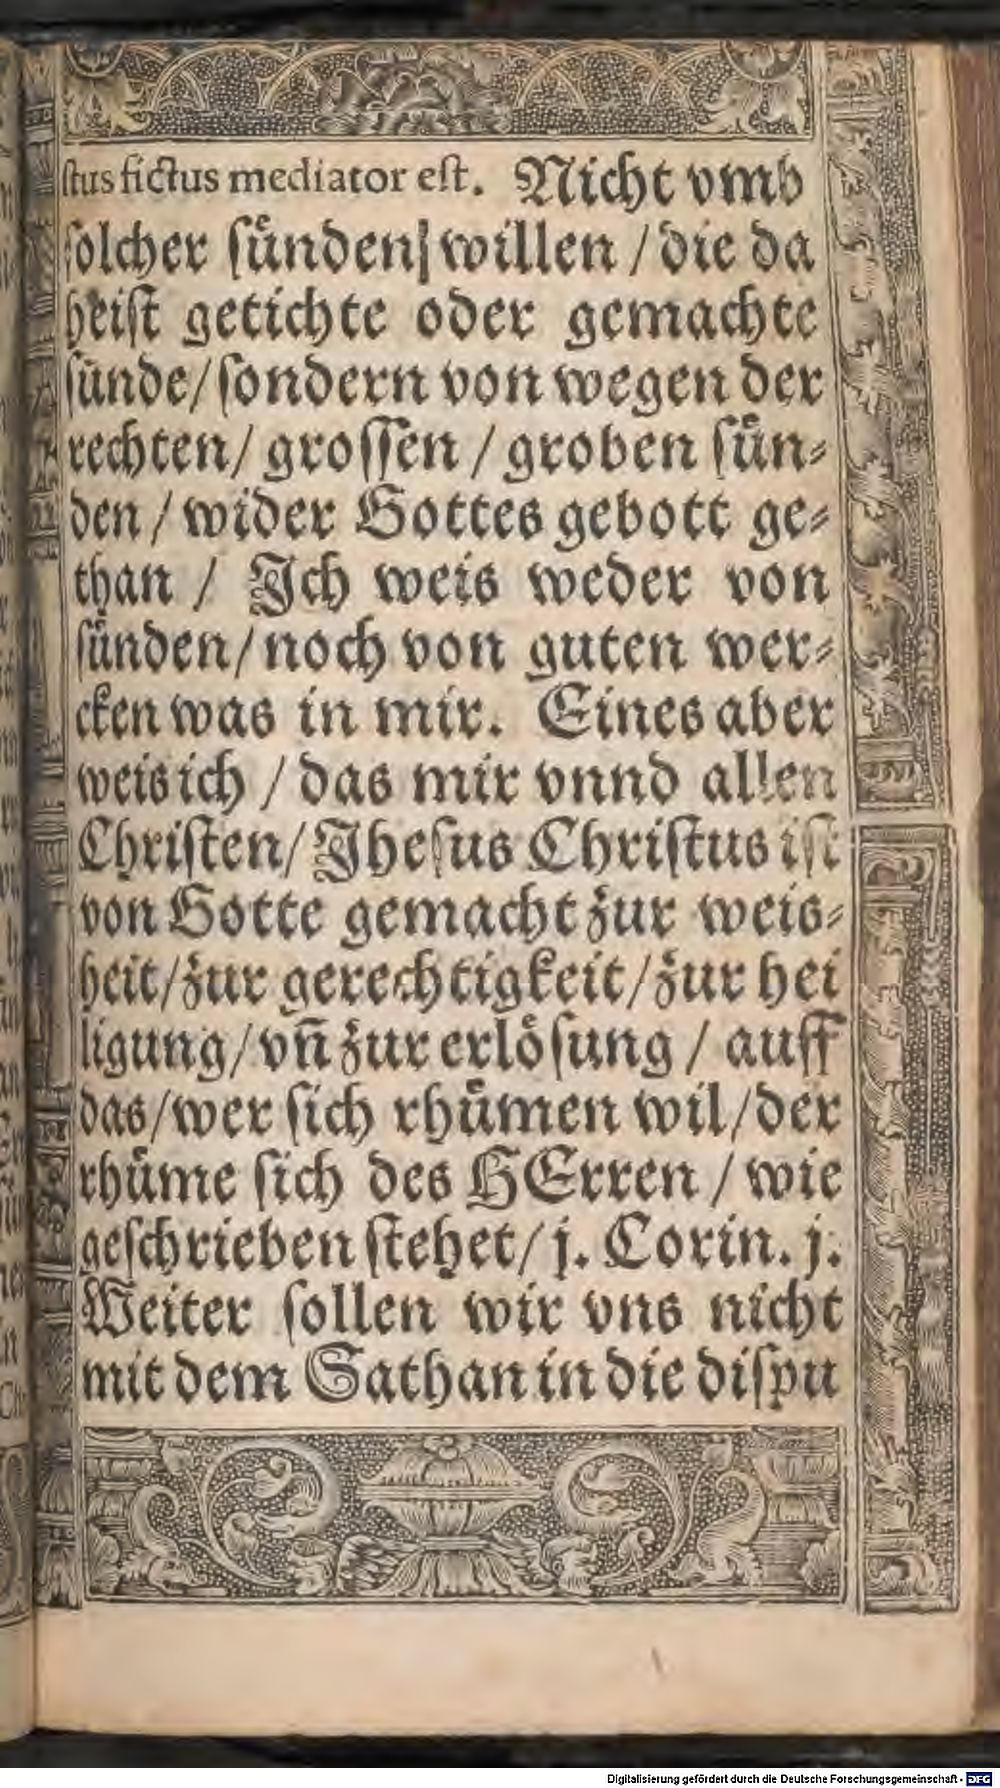 stus fictus mediator est. Nicht vmb
solcher suͤnden willen / die da
heist getichte oder gemachte
suͤnde/ sondern von wegen der
rechten/ grossen / groben suͤn⸗
den / wider Gottes gebott ge⸗
than / Ich weis weder von
suͤnden/ noch von guten wer⸗
cken was in mir. Eines aber
weis ich / das mir vnnd allen
Christen/ Jhesus Christus ist
von Gotte gemacht zur weis⸗
heit/ zur gerechtigkeit/ zur hei
ligung/ vñ zur erloͤsung / auff
das/ wer sich rhuͤmen wil/ der
rhuͤme sich des HErren / wie
geschrieben stehet/ j. Corin. j.
Weiter sollen wir vns nicht
mit dem Sathan in die dispu
Digitalisierung gefördert durch die Deutsche Forschungsgemeinschaft - DFG